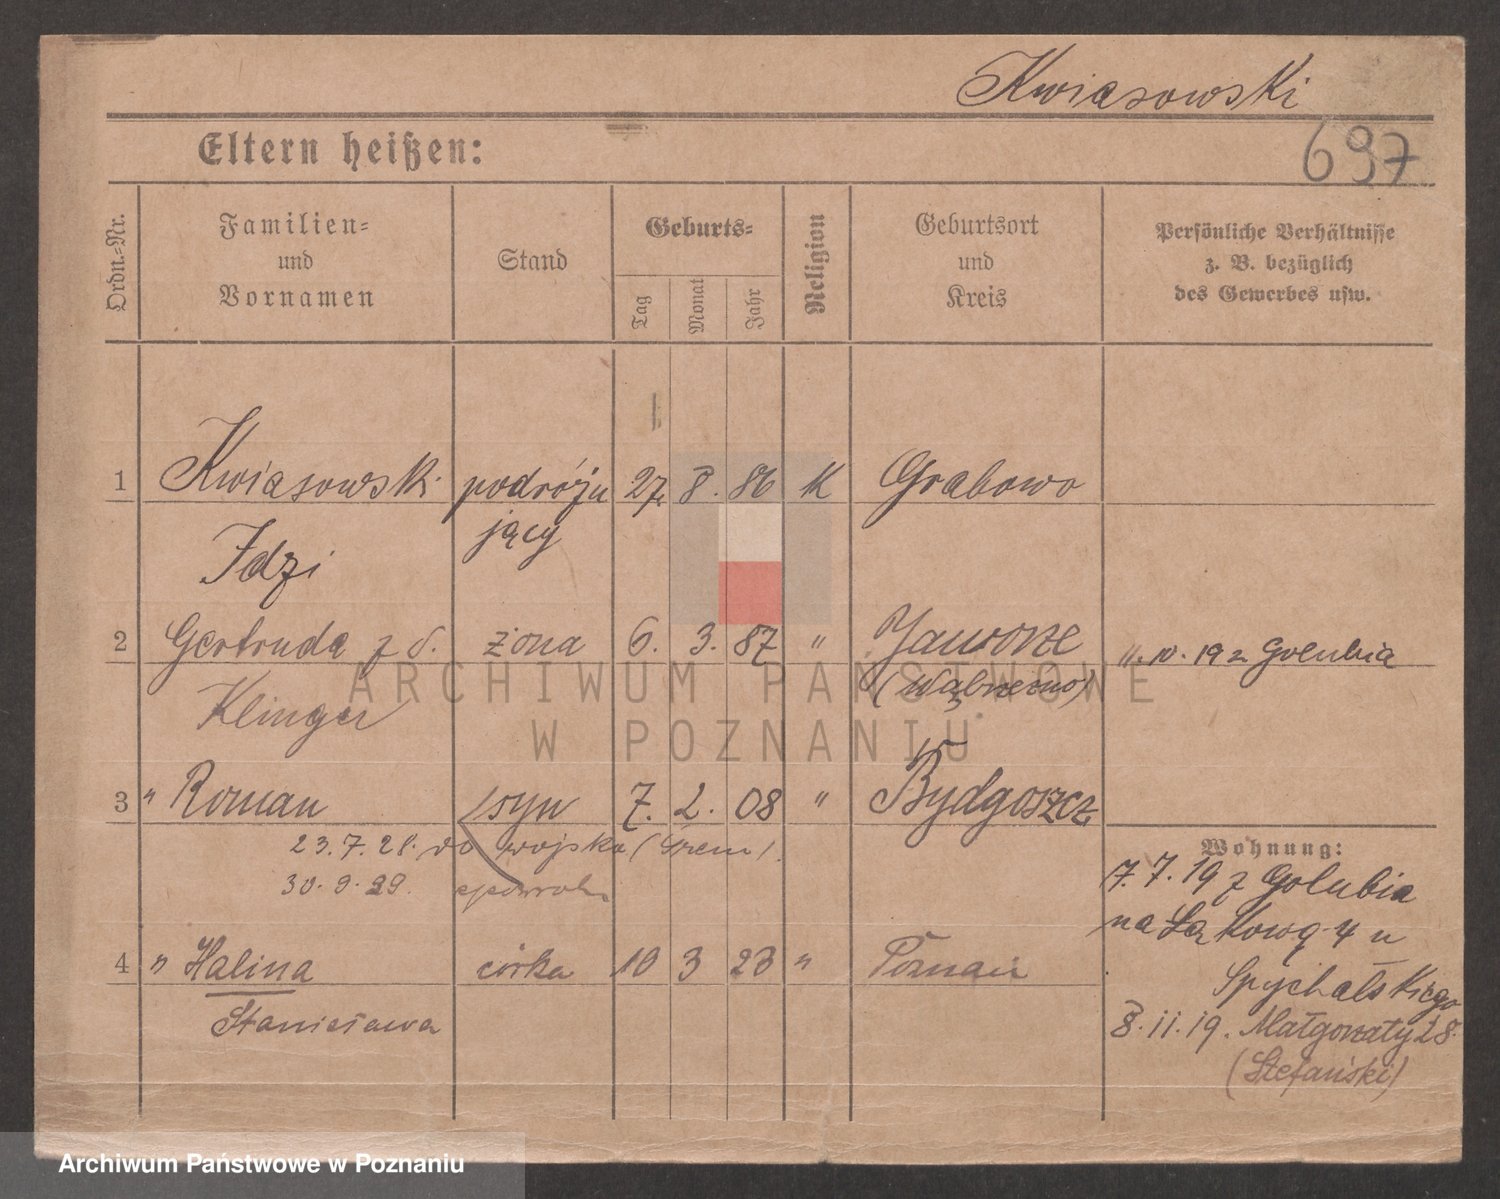 Kwiasowski
697
Eltern heißen:
Ordn.-Nr.
Familien-
und
Vornamen
Stand
Geburts-
Tag
Monat
Jahr
Religion
Geburtsort
und
Kreis
Persönliche Verhältnisse
z. B. bezüglich
des Gewerbes usw.
1 Kwiasowski podróżu 27. 8. 86 K Grabowo
jący
Idzi
2 Gertruda z d. żona 6. 3. 87 " Jaworze
10. 19 z Golubia
Klinger (Wąbrzeźno)
ARCHIWUM PAŃSTWOWE
W POZNANIU
3 " Roman syn 7. 2. 08 " Bydgoszcz
23.7.28. do wojska (Śrem).
30.9.29.
Wohnung:
7.7.19 z Golubia
na Łąkową 4 u
Spychalskiego
4 " Halina córka 10 3 23 " Poznań
Stanisława
8.11.19. Małgorzaty 28.
(Stefański)
Archiwum Państwowe w Poznaniu